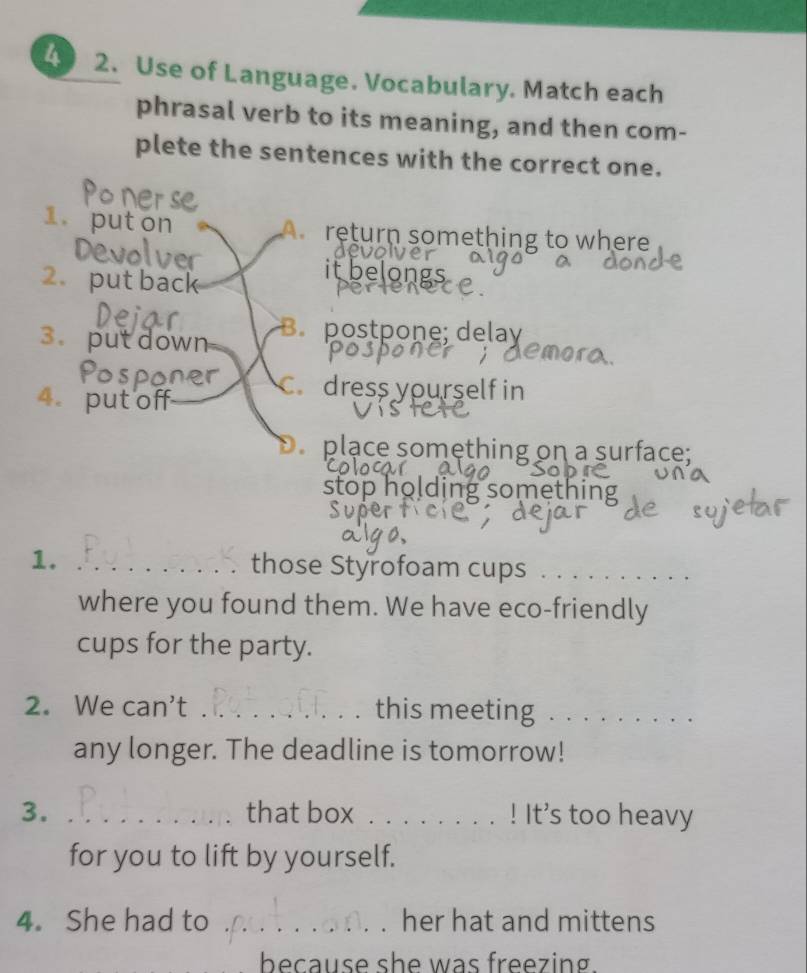 4 2. Use of Language. Vocabulary. Match each
phrasal verb to its meaning, and then com-
plete the sentences with the correct one.
Ponerse
1. put on
A. return something to where
devolver algo a donde
Devolver
it belongs
pertenece.
2. put back
Dejar
3. put down
B. postpone; delay
posponer ; demora.
Posponer
4. put off
C. dress yourself in
vistete
D. place something on a surface;
colocar algo sobre una
stop holding something
superficie; dejar de sujetar
algo.
1. Put back those Styrofoam cups . . . . . . . . . . .
where you found them. We have eco-friendly
cups for the party.
2. We can't Put off this meeting . . . . . . . . . .
any longer. The deadline is tomorrow!
3. Put down that box . . . . . . . . ! It's too heavy
for you to lift by yourself.
4. She had to put on her hat and mittens
. . . . . . . . . . . because she was freezing.